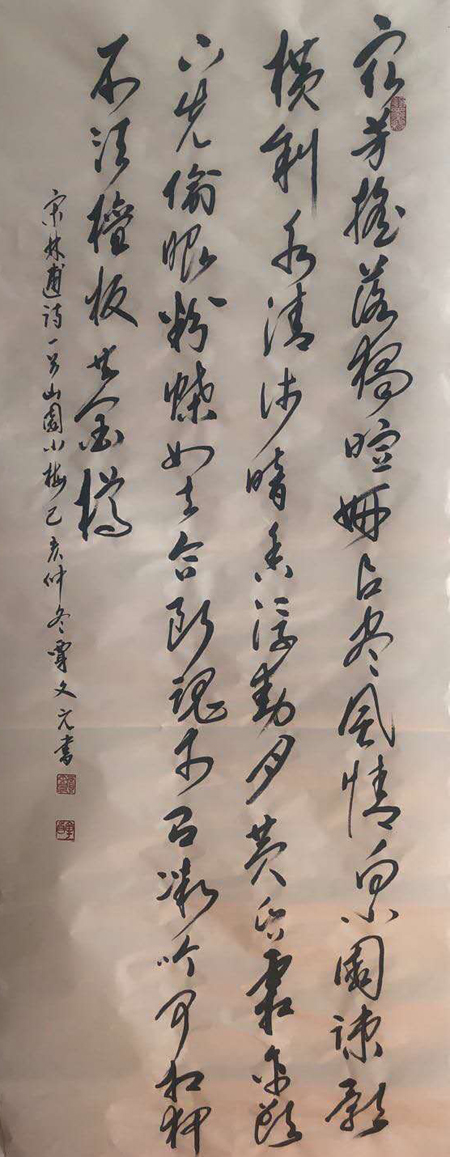 众芳摇落獨暄妍占尽風情向小園疎影
横斜水清浅暗香浮動月黄昏霜禽欲
下先偷眼粉蝶如知合断魂幸有微吟可相狎
不须檀板共金樽
宋林逋诗一首山園小梅己亥仲冬覃文元書